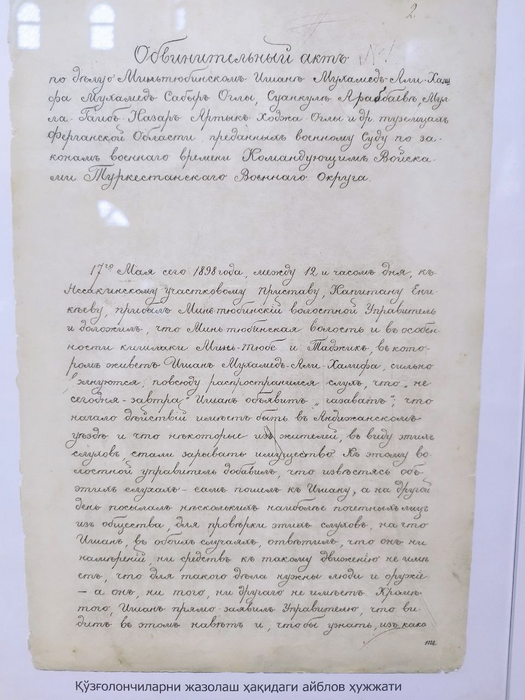 2
Обвинительный актъ № 1
по дѣлу о Миньтюбинскомъ Ишанѣ Мухамедъ-Али-Хали-
фа Мухамедъ Сабыръ Оглы, Суанкулѣ Араббаевѣ, Мул-
ла Гаибъ Назаръ Артыкъ Ходжа Оглы и др. туземцахъ
Ферганской Области, преданныхъ военному Суду по за-
конамъ военнаго времени Командующимъ Войска-
ми Туркестанскаго Военнаго Округа.
17го Мая сего 1898 года, между 12 и часомъ дня, къ
Ассакинскому участковому приставу, Капитану Ени-
кѣеву, прибылъ Минь-тюбинскій волостной Управитель
и доложилъ, что Минь тюбинская волость и въ особен-
ности кишлаки Минь-тюбе и Таджикъ, въ кото-
ромъ живетъ Ишанъ Мухамедъ-Али-Халифа, сильно
волнуются, повсюду распространился слухъ, что, не
сегодня-завтра Ишанъ объявитъ „газаватъ"; что
начало дѣйствій имѣетъ быть въ Андижанскомъ
уѣздѣ и что нѣкоторые изъ жителей, въ виду этихъ
слуховъ, стали зарывать имущество. Къ этому во-
лостной управитель добавилъ, что извѣстясь объ
этихъ слухахъ - самъ пошелъ къ Ишану, а на другой
день посылалъ нѣсколькихъ наиболѣе почетныхъ лицъ
изъ общества, для провѣрки этихъ слуховъ, на что
Ишанъ, въ обоихъ случаяхъ, отвѣтилъ, что онъ ни
намѣреній, ни средствъ къ такому движенію не имѣ-
етъ, что для такого дѣла нужны люди и оружіе
— а онъ, ни того, ни другаго не имѣетъ. Кромѣ
того, Ишанъ прямо заявилъ Управителю, что ви-
дитъ въ этомъ навѣтъ и, чтобы узнать, изъ како
Қўзғолончиларни жазолаш ҳақидаги айблов ҳужжати